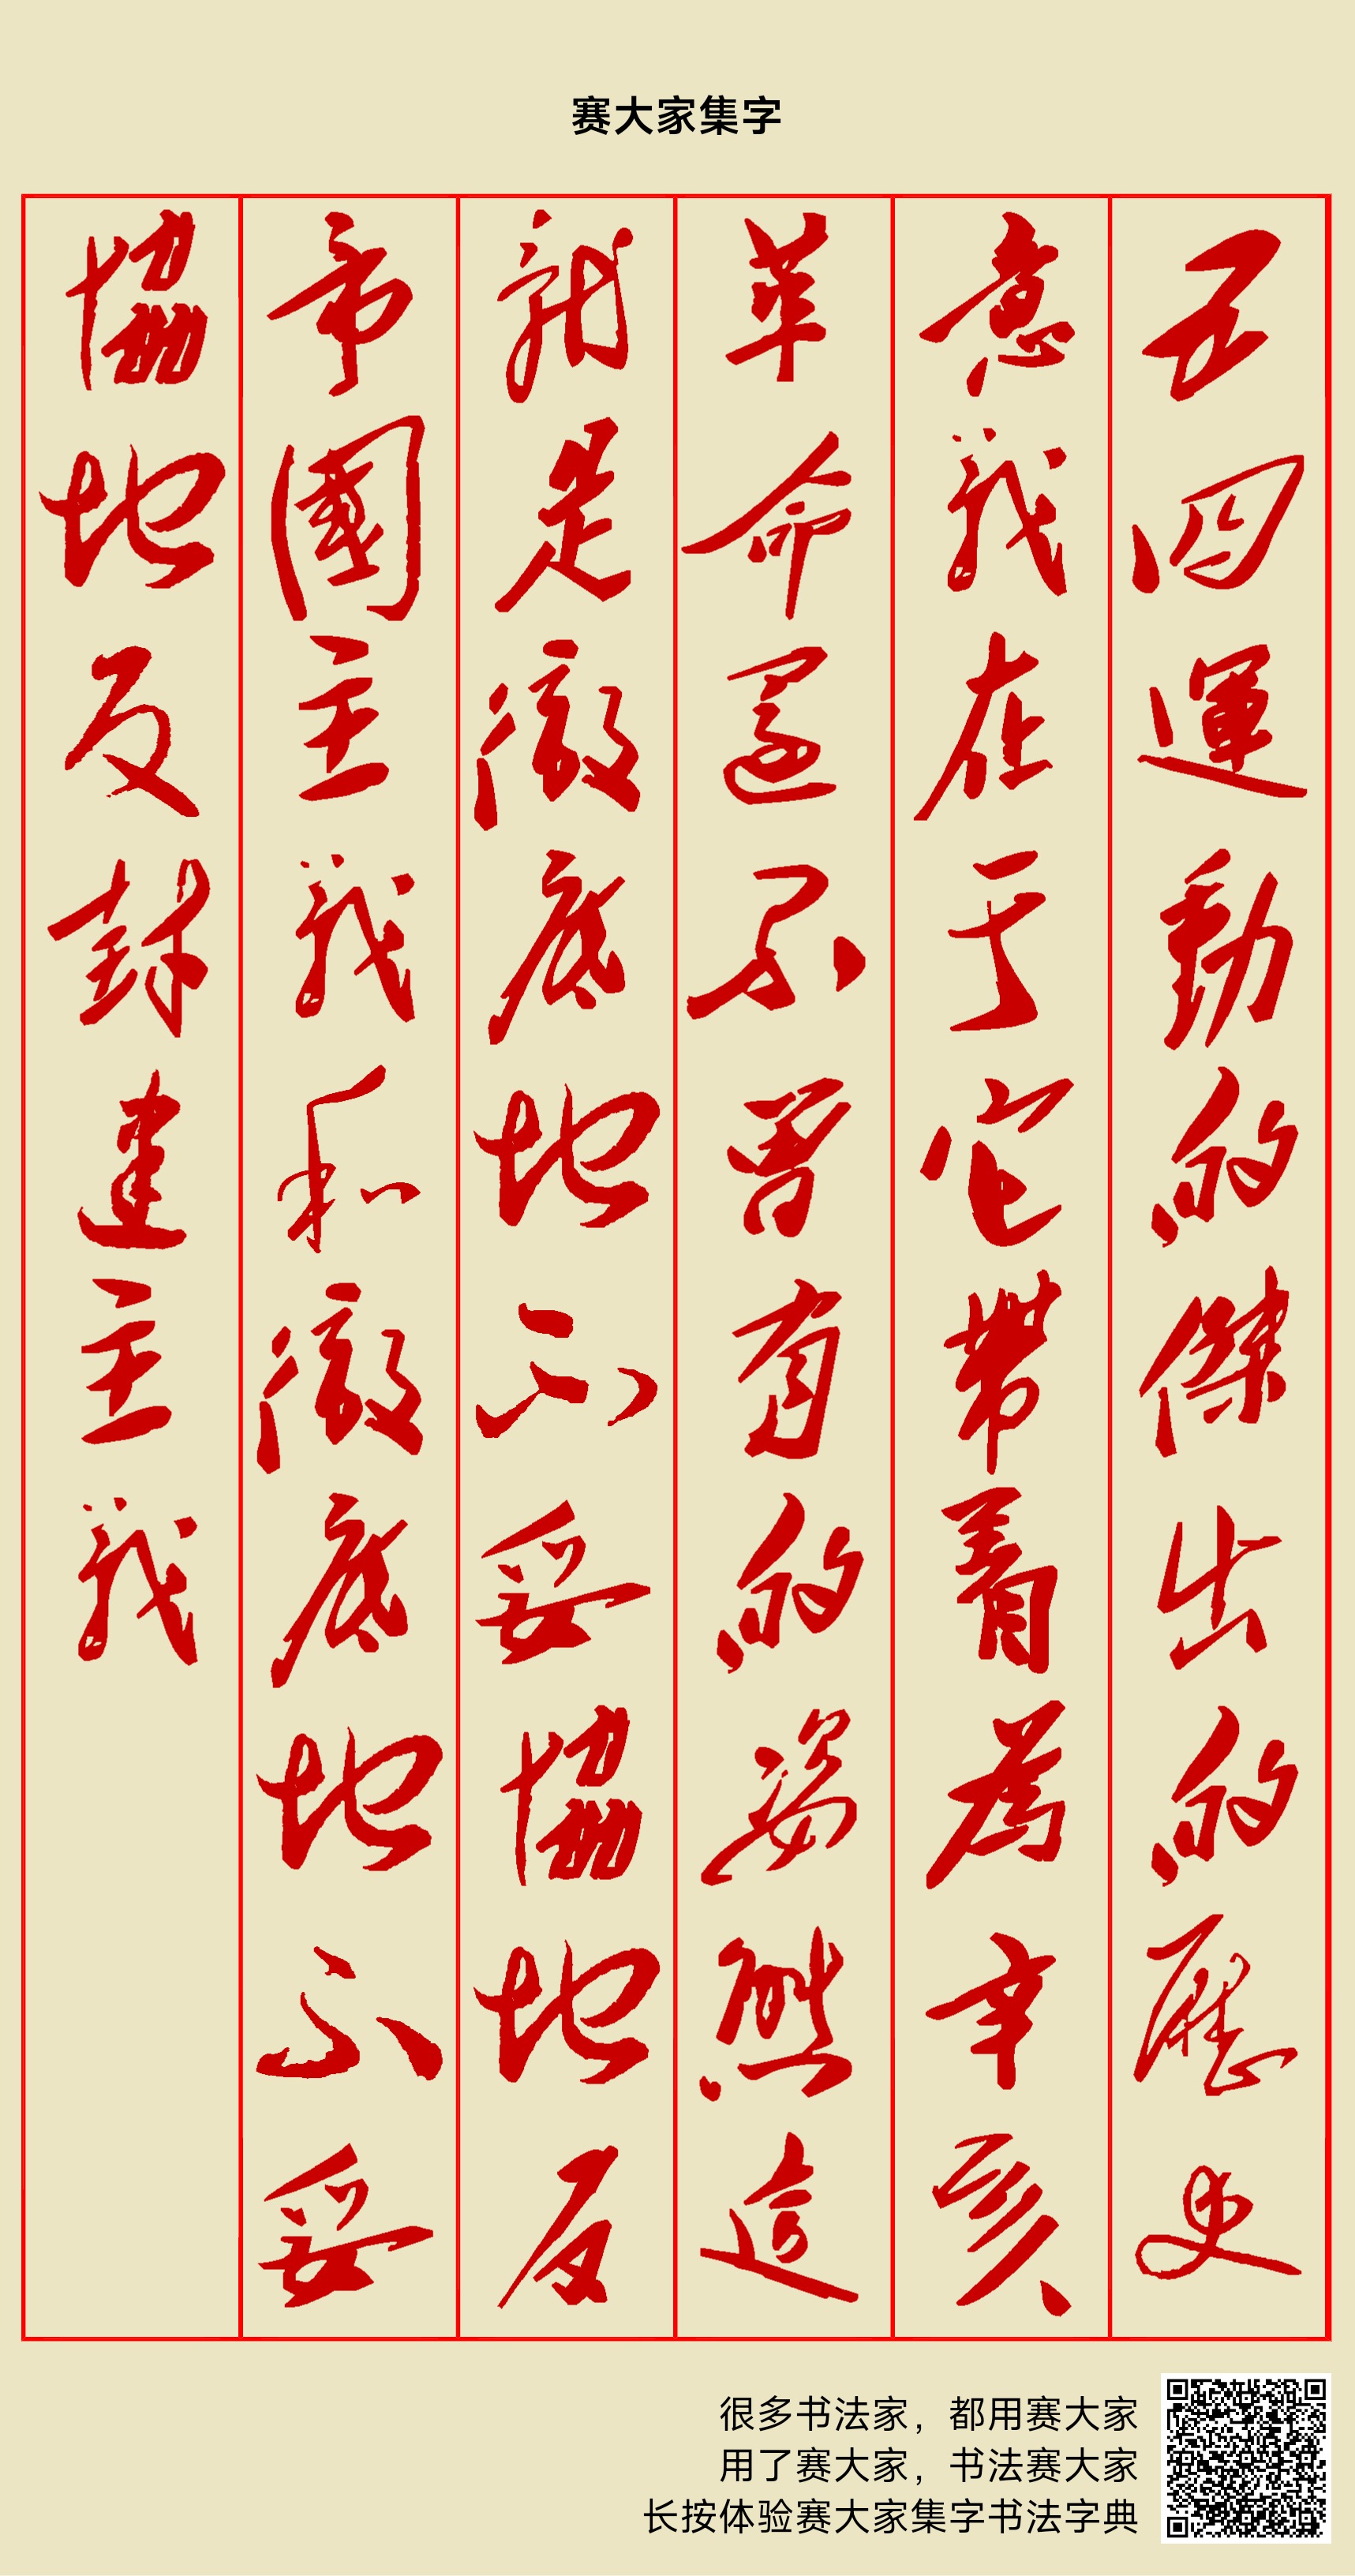 赛大家集字
五四運動的傑出的歷史
意義在于它帶着為辛亥
革命還不曾有的姿態這
就是徹底地不妥協地反
帝國主義和徹底地不妥
協地反封建主義
很多书法家，都用赛大家
用了赛大家，书法赛大家
长按体验赛大家集字书法字典